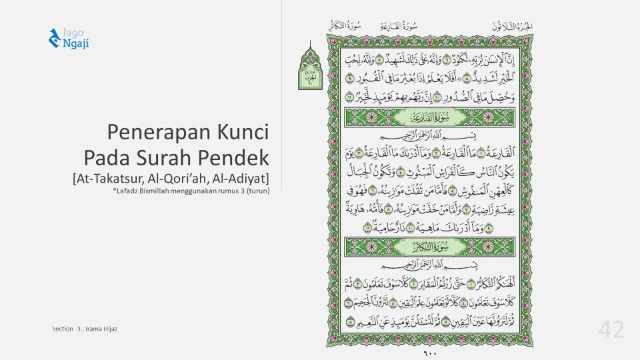 Jago
Ngaji
Penerapan Kunci
Pada Surah Pendek
[At-Takatsur, Al-Qori’ah, Al-Adiyat]
*Lafadz Bismillah menggunakan rumus 3 (turun)
Section 3 : Irama Hijaz
42
الجزء الثلاثون
سورة القارعة
سورة التكاثر
إن الإنسن لربه لكنود ٦ وإنه على ذلك لشهيد ٧ وإنه لحب
الخير لشديد ٨ أفلا يعلم إذا بعثر ما في القبور ٩
وحصل ما في الصدور ١٠ إن ربهم بهم يومئذ لخبير ١١
سورة القارعة
بسم الله الرحمن الرحيم
القارعة ١ ما القارعة ٢ وما أدرىك ما القارعة ٣ يوم
يكون الناس كالفراش المبثوث ٤ وتكون الجبال
كالعهن المنفوش ٥ فأما من ثقلت موزينه ٦ فهو في
عيشة راضية ٧ وأما من خفت موزينه ٨ فأمه هاوية
٩ وما أدرىك ما هيه ١٠ نار حامية ١١
سورة التكاثر
بسم الله الرحمن الرحيم
ألهىكم التكاثر ١ حتى زرتم المقابر ٢ كلا سوف تعلمون ٣ ثم
كلا سوف تعلمون ٤ كلا لو تعلمون علم اليقين ٥ لترون الجحيم ٦
ثم لترونها عين اليقين ٧ ثم لتسئلن يومئذ عن النعيم ٨
٦٠٠